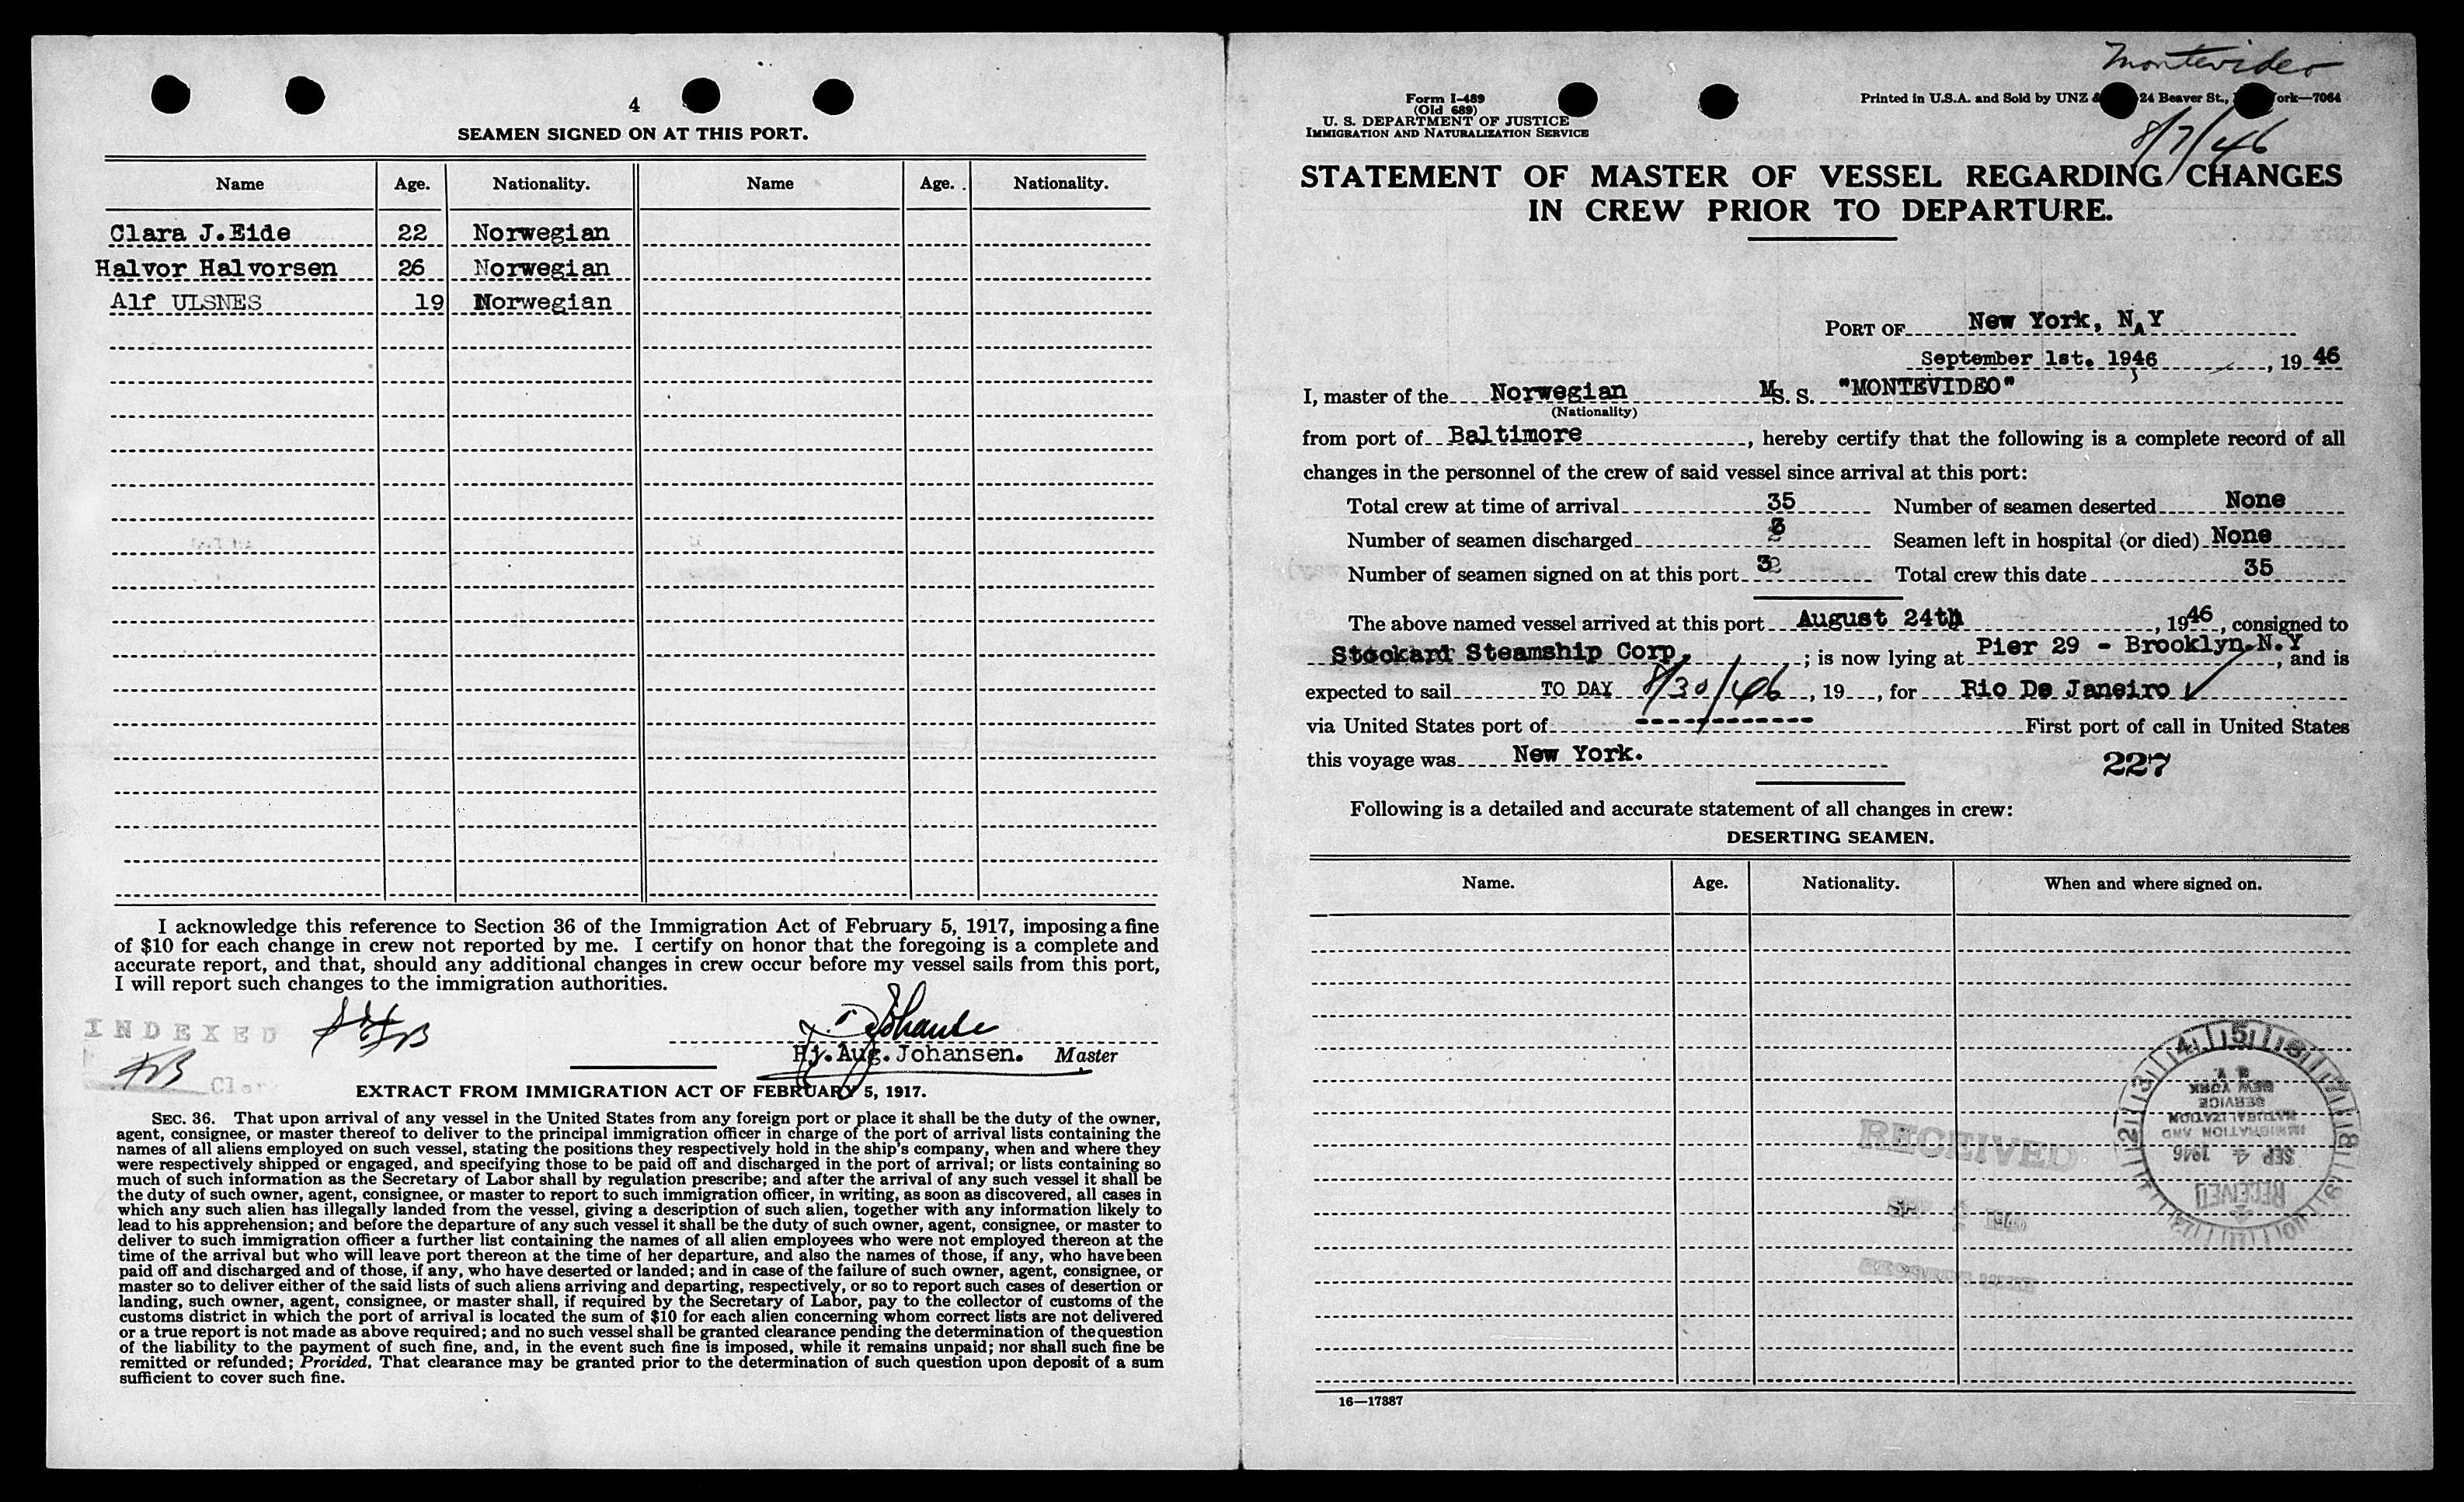 4
SEAMEN SIGNED ON AT THIS PORT.
Name Age. Nationality. Name Age. Nationality.
Clara J.Eide 22 Norwegian
Halvor Halvorsen 26 Norwegian
Alf ULSNES 19 Norwegian
I acknowledge this reference to Section 36 of the Immigration Act of February 5, 1917, imposing a fine
of $10 for each change in crew not reported by me. I certify on honor that the foregoing is a complete and
accurate report, and that, should any additional changes in crew occur before my vessel sails from this port,
I will report such changes to the immigration authorities.
INDEXED
Hj. Aug. Johansen. Master
EXTRACT FROM IMMIGRATION ACT OF FEBRUARY 5, 1917.
SEC. 36. That upon arrival of any vessel in the United States from any foreign port or place it shall be the duty of the owner,
agent, consignee, or master thereof to deliver to the principal immigration officer in charge of the port of arrival lists containing the
names of all aliens employed on such vessel, stating the positions they respectively hold in the ship's company, when and where they
were respectively shipped or engaged, and specifying those to be paid off and discharged in the port of arrival; or lists containing so
much of such information as the Secretary of Labor shall by regulation prescribe; and after the arrival of any such vessel it shall be
the duty of such owner, agent, consignee, or master to report to such immigration officer, in writing, as soon as discovered, all cases in
which any such alien has illegally landed from the vessel, giving a description of such alien, together with any information likely to
lead to his apprehension; and before the departure of any such vessel it shall be the duty of such owner, agent, consignee, or master to
deliver to such immigration officer a further list containing the names of all alien employees who were not employed thereon at the
time of the arrival but who will leave port thereon at the time of her departure, and also the names of those, if any, who have been
paid off and discharged and of those, if any, who have deserted or landed; and in case of the failure of such owner, agent, consignee, or
master so to deliver either of the said lists of such aliens arriving and departing, respectively, or so to report such cases of desertion or
landing, such owner, agent, consignee, or master shall, if required by the Secretary of Labor, pay to the collector of customs of the
customs district in which the port of arrival is located the sum of $10 for each alien concerning whom correct lists are not delivered
or a true report is not made as above required; and no such vessel shall be granted clearance pending the determination of the question
of the liability to the payment of such fine, and, in the event such fine is imposed, while it remains unpaid; nor shall such fine be
remitted or refunded; Provided, That clearance may be granted prior to the determination of such question upon deposit of a sum
sufficient to cover such fine.
Montevideo
8/7/46
Form I-489
(Old 689)
U. S. DEPARTMENT OF JUSTICE
IMMIGRATION AND NATURALIZATION SERVICE
Printed in U.S.A. and Sold by UNZ & 24 Beaver St., ork—7064
STATEMENT OF MASTER OF VESSEL REGARDING CHANGES
IN CREW PRIOR TO DEPARTURE.
PORT OF New York, N.Y
September 1st. 1946, 19 46
I, master of the Norwegian M S. S. "MONTEVIDEO"
(Nationality)
from port of Baltimore, hereby certify that the following is a complete record of all
changes in the personnel of the crew of said vessel since arrival at this port:
Total crew at time of arrival 35 Number of seamen deserted None
Number of seamen discharged 3 Seamen left in hospital (or died) None
Number of seamen signed on at this port 3 Total crew this date 35
The above named vessel arrived at this port August 24th, 1946, consigned to
Stockard Steamship Corp.; is now lying at Pier 29 - Brooklyn.N.Y, and is
expected to sail TO DAY 8/30/46, 19, for Rio De Janeiro
via United States port of ---------- First port of call in United States
this voyage was New York.
227
Following is a detailed and accurate statement of all changes in crew:
DESERTING SEAMEN.
Name. Age. Nationality. When and where signed on.
RECEIVED
SEP 4 1946
IMMIGRATION AND
NATURALIZATION
SERVICE
NEW YORK
N. Y.
RECEIVED
16—17387